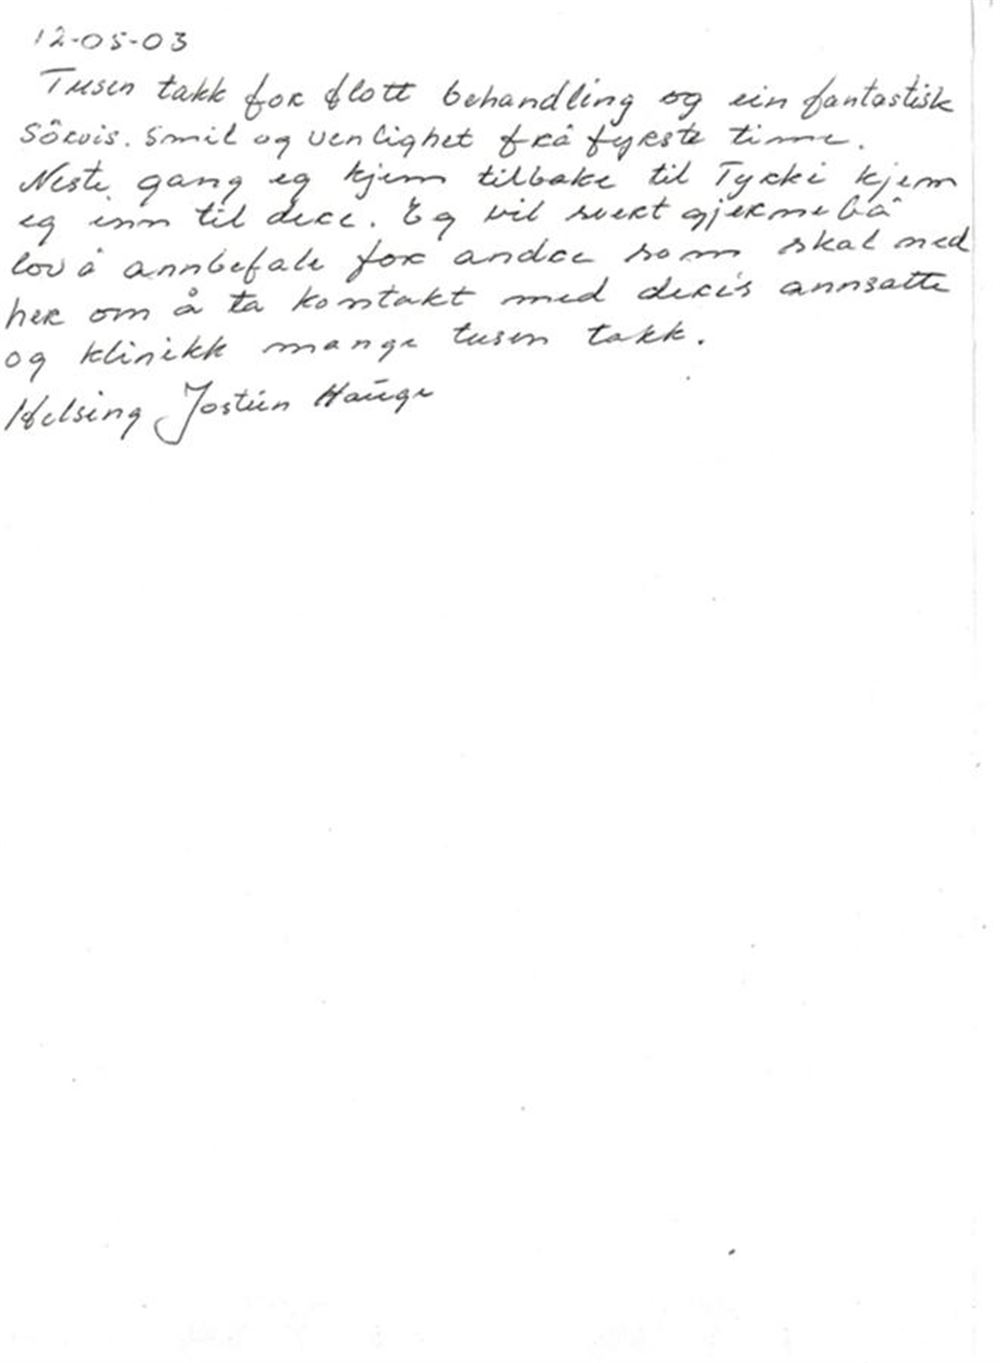 12-05-03
Tusen takk for flott behandling og ein fantastisk
Sôrvis. Smil og venlighet frå fyrste time.
Neste gang eg kjem tilbake til Tyrki kjem
eg inn til dere. Eg vil svert gjerne få
lov å annbefale for andre som skal ned
her om å ta kontakt med deris annsatte
og klinikk mange tusen takk.
Helsing Jostein Hauge